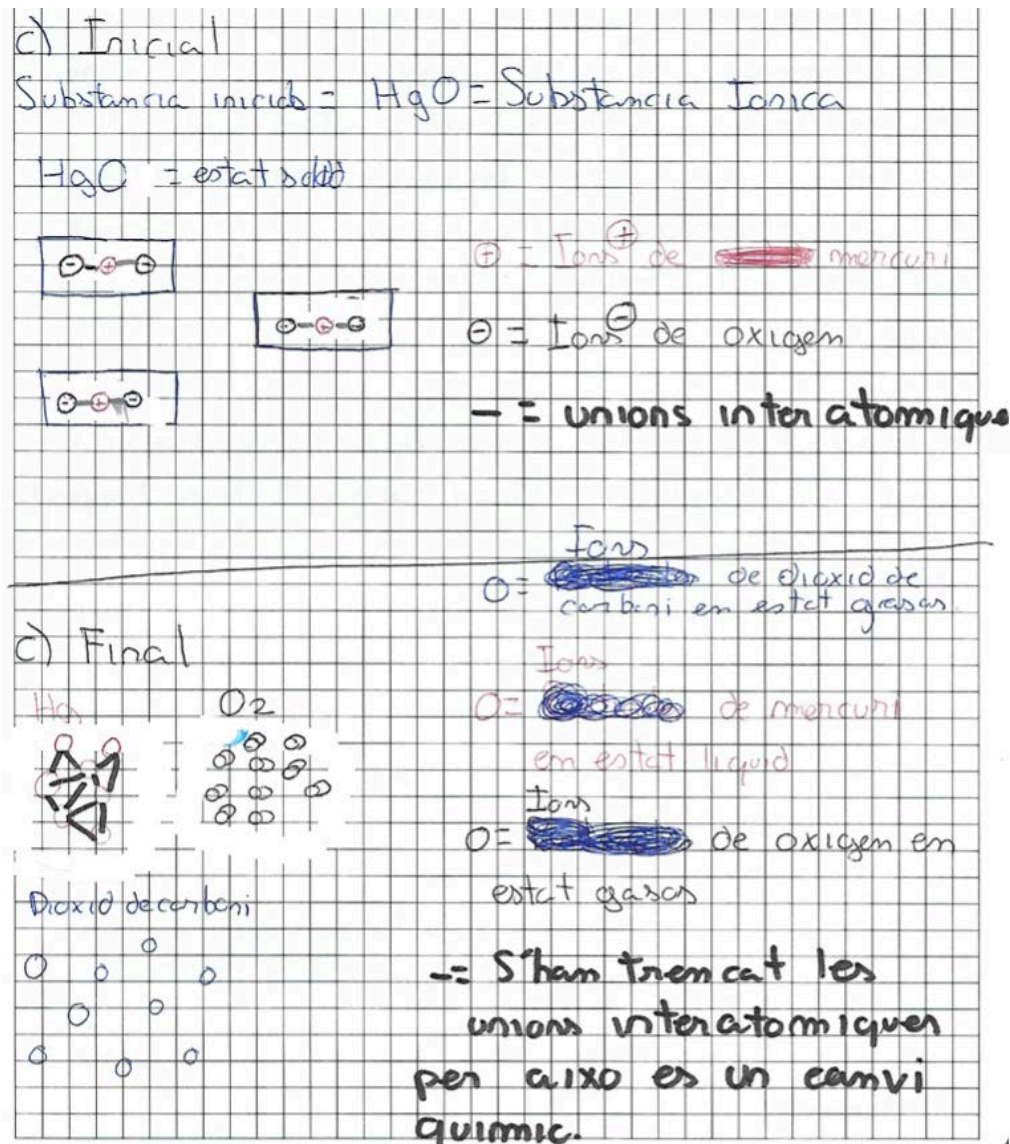 c) Inicial
Substancia inicial = HgO = Substancia Ionica
HgO = estat solid
⊕ = Ions⊕ de mercuri
⊖ = Ions⊖ de oxigen
- = unions interatomique
Ions
O = de dioxid de
carboni en estat gasas.
c) Final
Hg
O2
Ions
O = de mercuri
en estat liquid
Ions
O = de oxigen en
estat gasas
Dioxid de carboni
-= S'han trencat les
unions interatomiques
per aixo es un canvi
quimic.